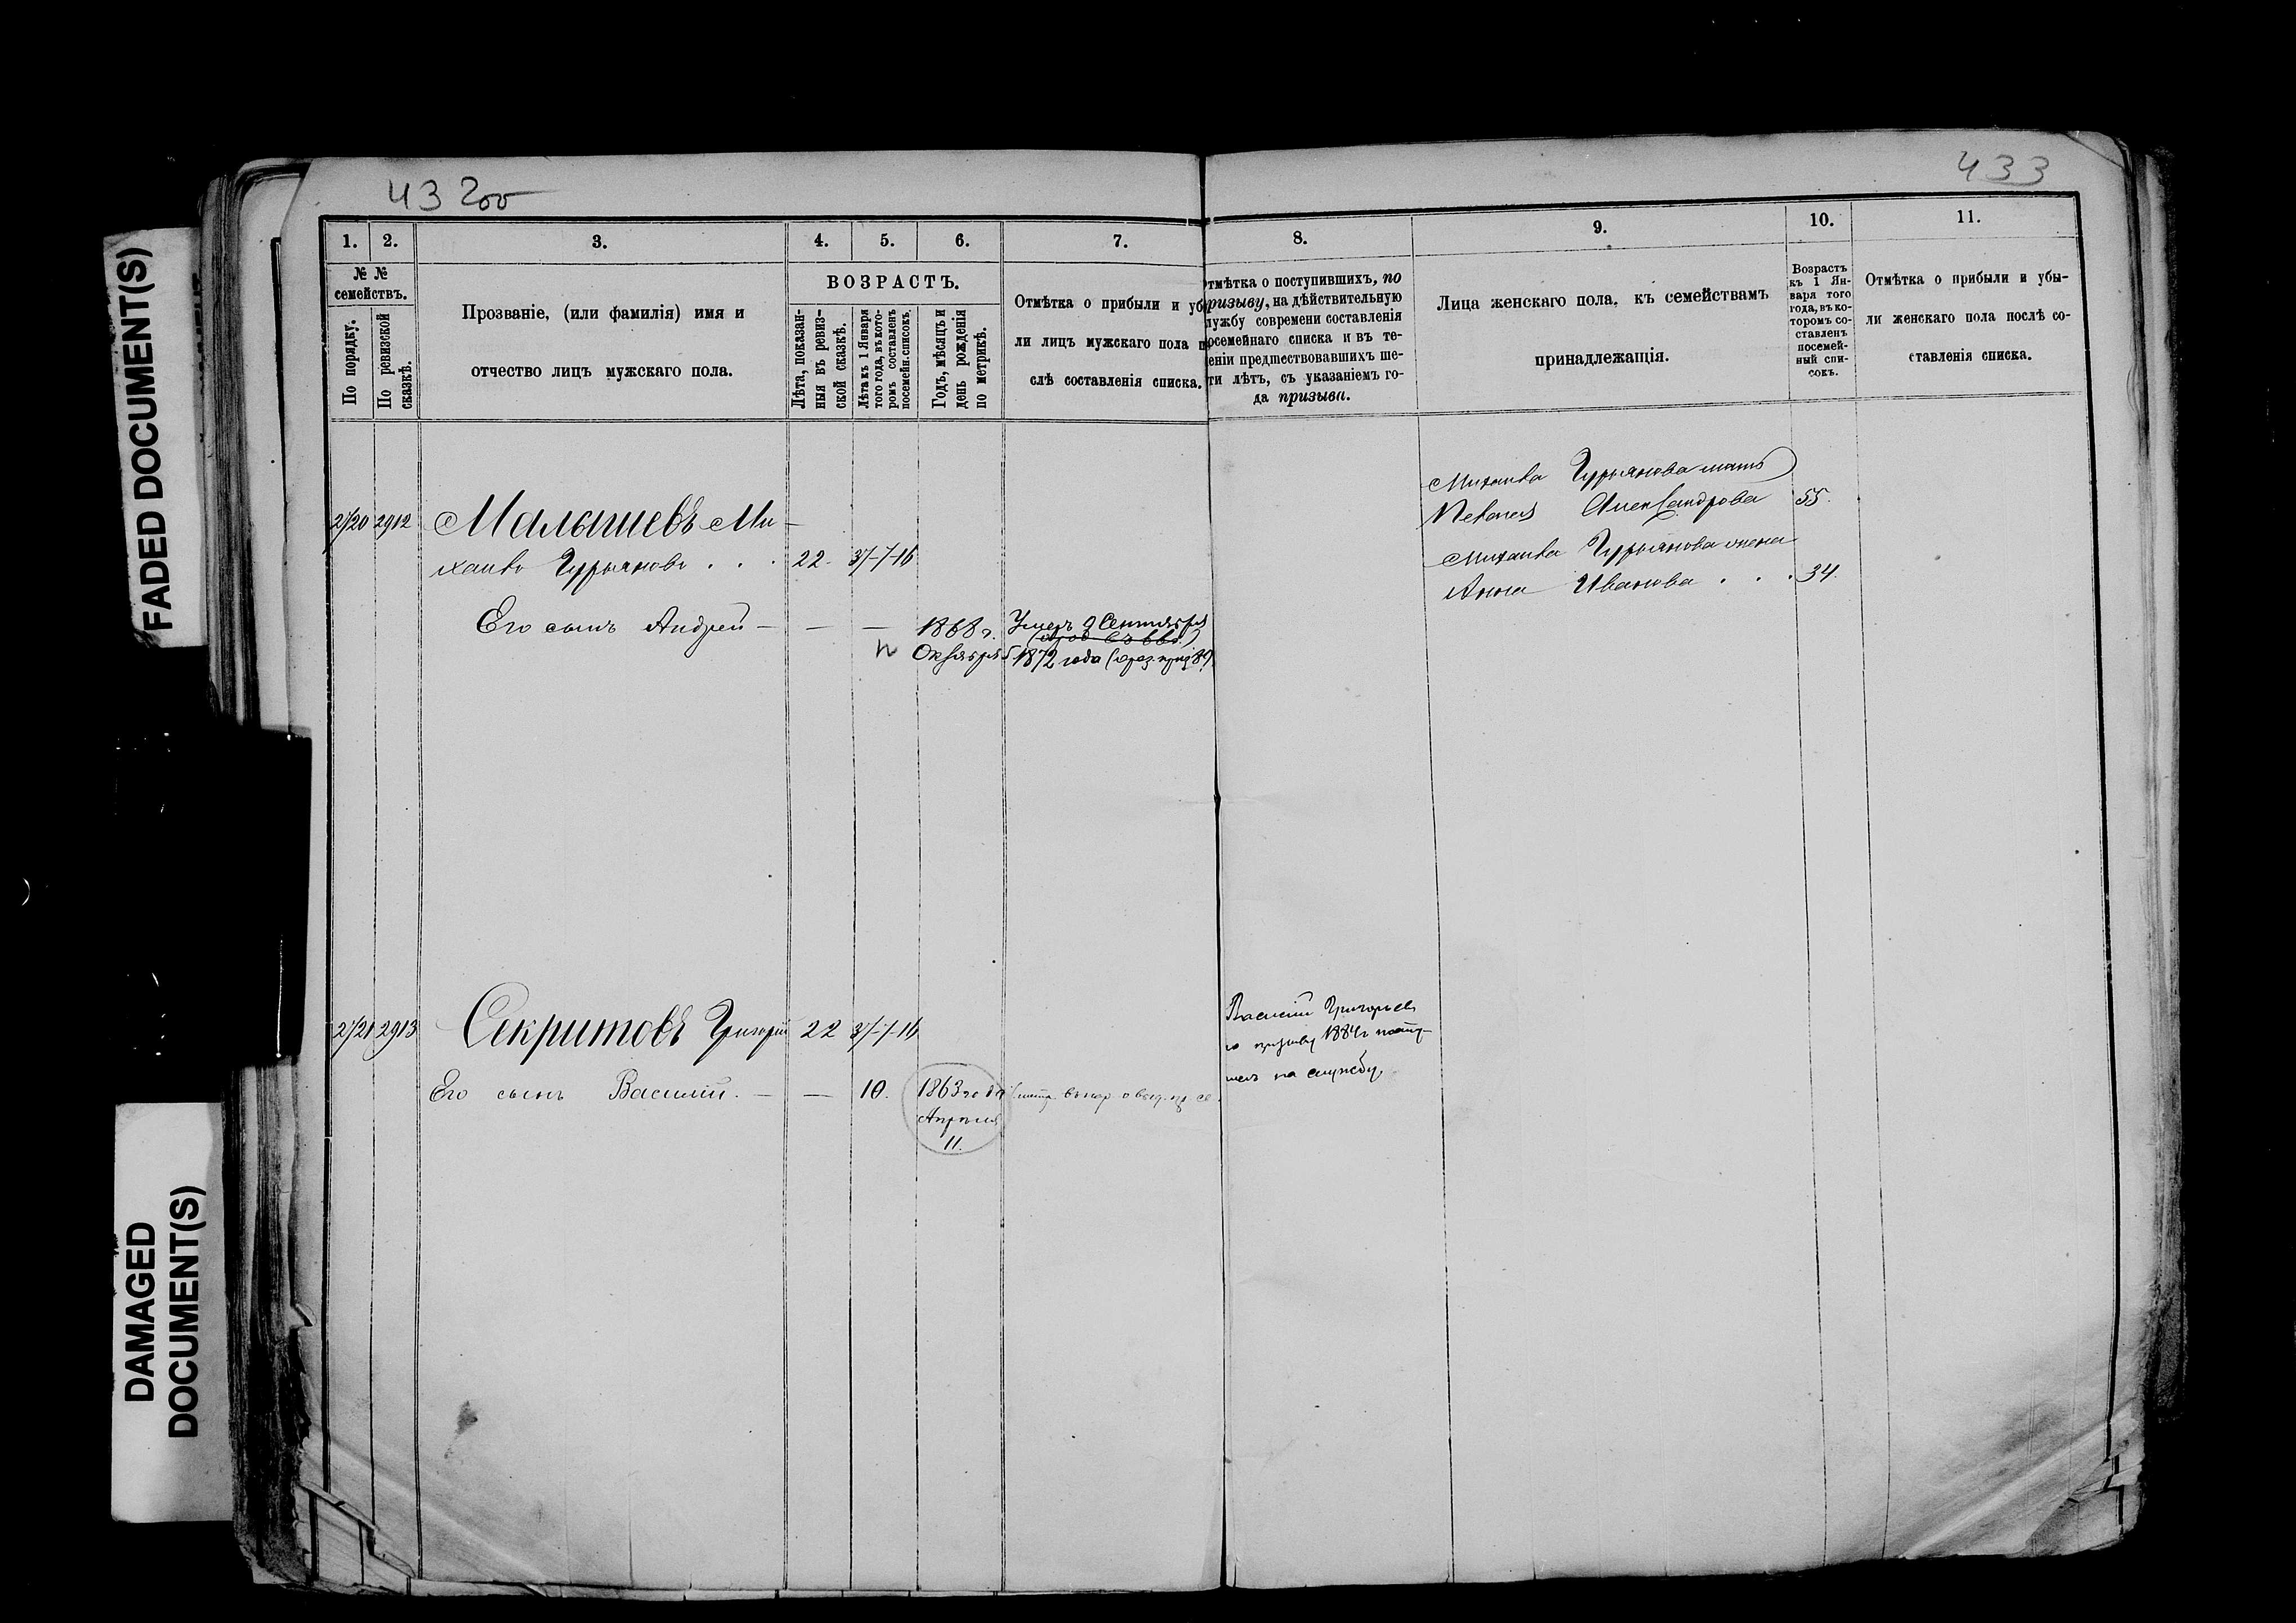 FADED DOCUMENT(S)
DAMAGED
DOCUMENT(S)
43
433
1.
2.
3.
4.
5.
6.
7.
8.
9.
10.
11.
№ №
семействъ.
По порядку.
По ревизской
сказкѣ.
Прозваніе, (или фамилія) имя и
отчество лицъ мужскаго пола.
ВОЗРАСТЪ.
Лѣта, показан-
ныя въ ревиз-
ской сказкѣ.
Лѣта къ 1 Января
того года, въ кото-
ромъ составленъ
посемейн. списокъ.
Годъ, мѣсяцъ и
день рожденія
по метрикѣ.
Отмѣтка о прибыли и уб
ли лицъ мужскаго пола п
слѣ составленія списка.
тмѣтка о поступившихъ, по
ризыву, на дѣйствительную
лужбу современи составленія
осемейнаго списка и въ те-
еніи предшествовавшихъ ше-
ти лѣтъ, съ указаніемъ го-
да призыва.
Лица женскаго пола, къ семействамъ
принадлежащія.
Возрастъ
къ 1 Ян-
варя того
года, въ ко-
торомъ со-
ставленъ
посемей-
ный спи-
сокъ.
Отмѣтка о прибыли и убы-
ли женскаго пола послѣ со-
ставленія списка.
2720 2912 Малышевъ Ми-
хаилъ Гурьяновъ . . . 22. 37-7-16
Его сынъ Андрей — — — 1868 г. Умеръ 9 Сентября
Октября 1872 года
Михаила Гурьянова мать
Александрова 55.
Михаила Гурьянова жена
Анна Иванова . . . 34.
2721 2913 Секритовъ Григорій 22 37-7-16
Его сынъ Василій. — — 10. 1863 года
Апрѣля
11.
Василій Григорьевъ
призыву 1884 г. посту-
пилъ на службу